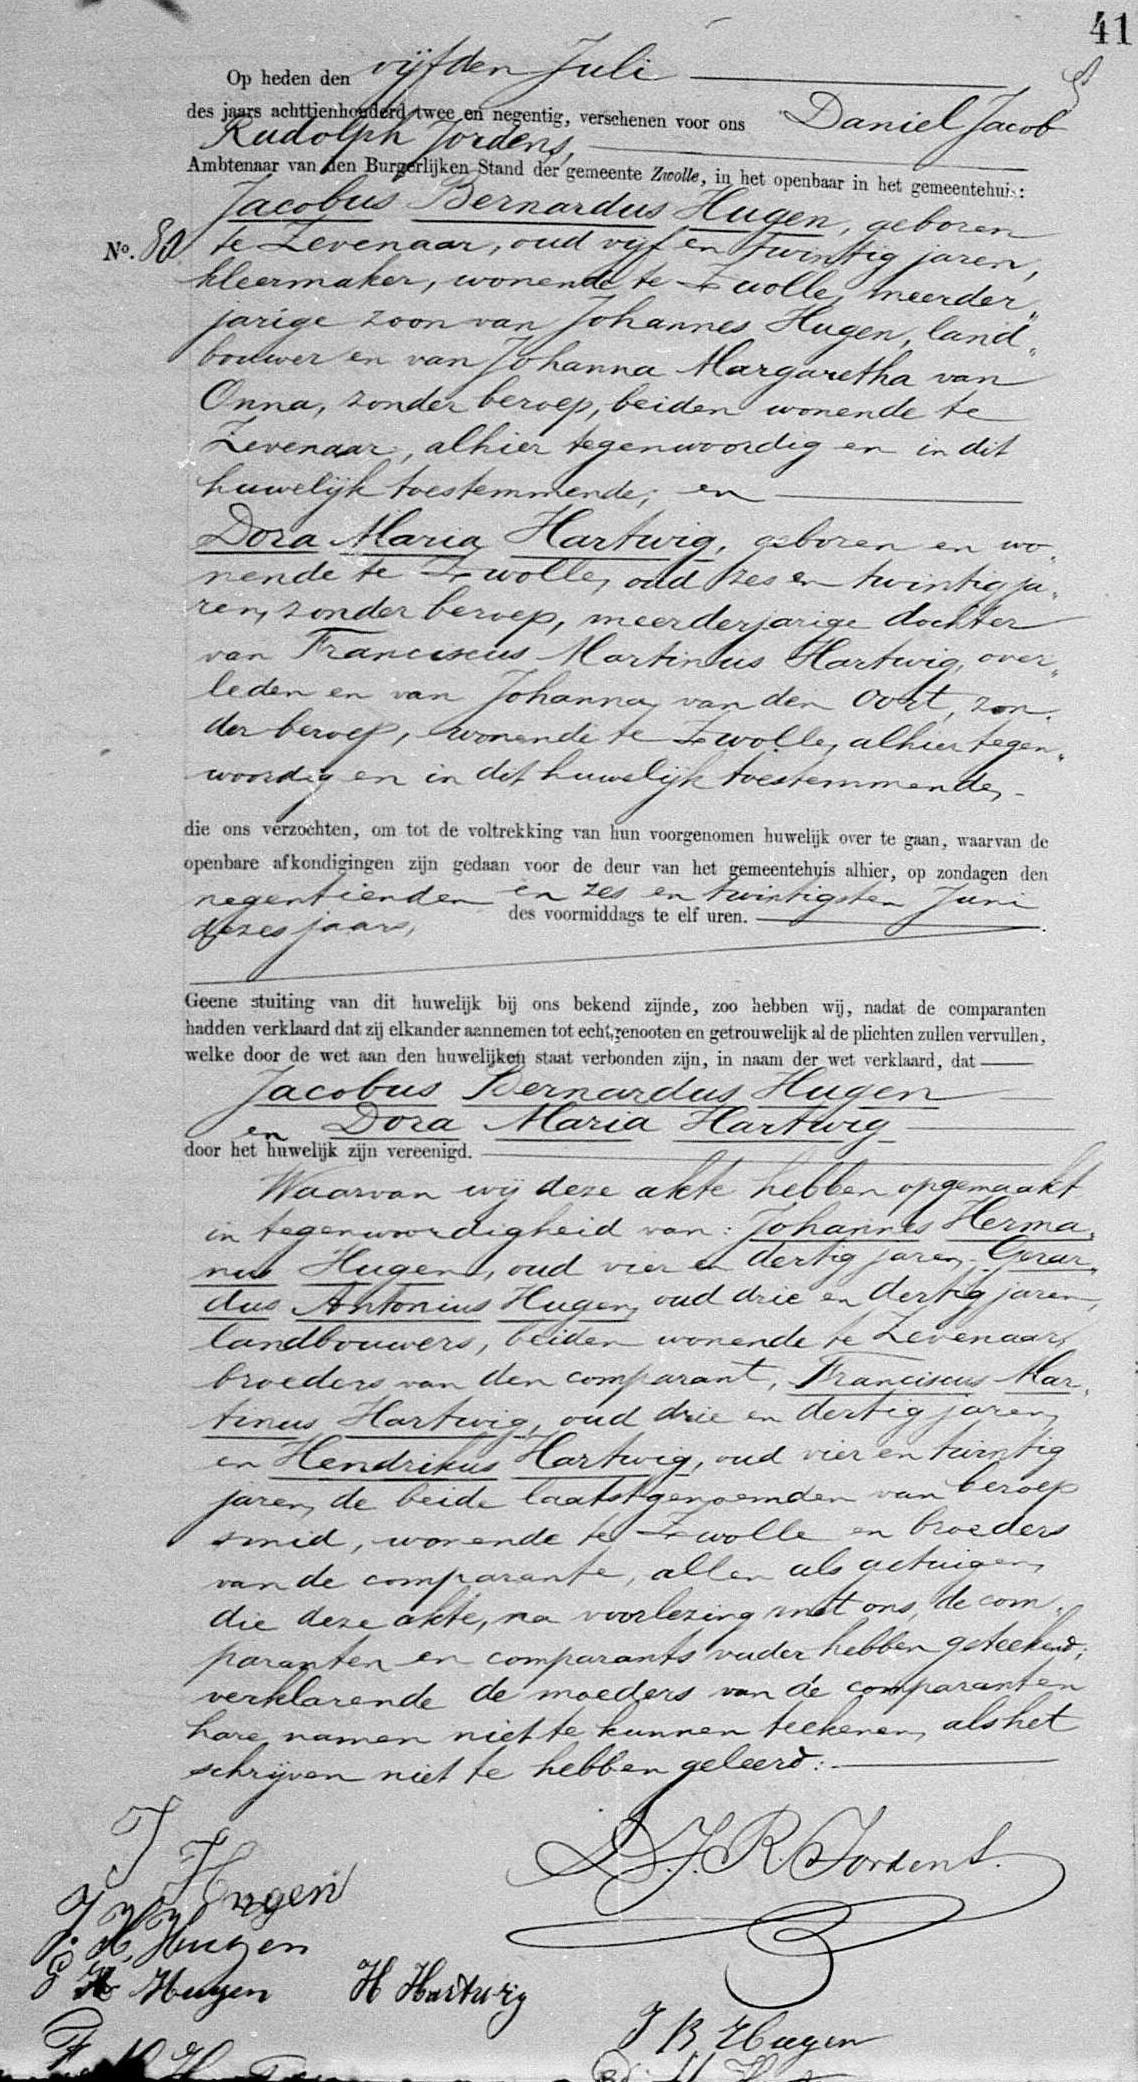 41
Op heden den vijfden Juli
des jaars achttienhonderd twee en negentig, verschenen voor ons Daniel Jacob
Rudolph Jordens,
Ambtenaar van den Burgerlijken Stand der gemeente Zwolle, in het openbaar in het gemeentehuis:
Jacobus Bernardus Hugen, geboren
No. 80 te Zevenaar, oud vijf en twintig jaren,
kleermaker, wonende te Zwolle, meerder„
jarige zoon van Johannes Hugen, land„
bouwer en van Johanna Margaretha van
Onna, zonder beroep, beiden wonende te
Zevenaar, alhier tegenwoordig en in dit
huwelijk toestemmende; en
Dora Maria Hartwig, geboren en wo„
nende te Zwolle, oud zes en twintig ja„
ren, zonder beroep, meerderjarige dochter
van Franciscus Martinus Hartwig, over„
leden en van Johanna van den Oort, zon„
der beroep, wonende te Zwolle, alhier tegen„
woordig en in dit huwelijk toestemmende,
die ons verzochten, om tot de voltrekking van hun voorgenomen huwelijk over te gaan, waarvan de
openbare afkondigingen zijn gedaan voor de deur van het gemeentehuis alhier, op zondagen den
negentienden en zes en twintigsten Juni
dezes jaars, des voormiddags te elf uren.
Geene stuiting van dit huwelijk bij ons bekend zijnde, zoo hebben wij, nadat de comparanten
hadden verklaard dat zij elkander aannemen tot echtgenooten en getrouwelijk al de plichten zullen vervullen,
welke door de wet aan den huwelijken staat verbonden zijn, in naam der wet verklaard, dat
Jacobus Bernardus Hugen
en Dora Maria Hartwig
door het huwelijk zijn vereenigd.
Waarvan wij deze akte hebben opgemaakt
in tegenwoordigheid van: Johannes Herma„
nus Hugen, oud vier en dertig jaren, Gerar„
dus Antonius Hugen, oud drie en dertig jaren,
landbouwers, beiden wonende te Zevenaar,
broeders van den comparant, Franciscus Mar„
tinus Hartwig, oud drie en dertig jaren,
en Hendrikus Hartwig, oud vier en twintig
jaren, de beide laatstgenoemden van beroep
smid, wonende te Zwolle en broeders
van de comparante, allen als getuigen,
die deze akte, na voorlezing met ons, de com„
paranten en comparants vader hebben geteekend;
verklarende de moeders van de comparanten
hare namen niet te kunnen teekenen, als het
schrijven niet te hebben geleerd:
J Hugen
D. J. R. Jordens.
J. H. Hugen
Hugen
H Hartwig
J B Hugen